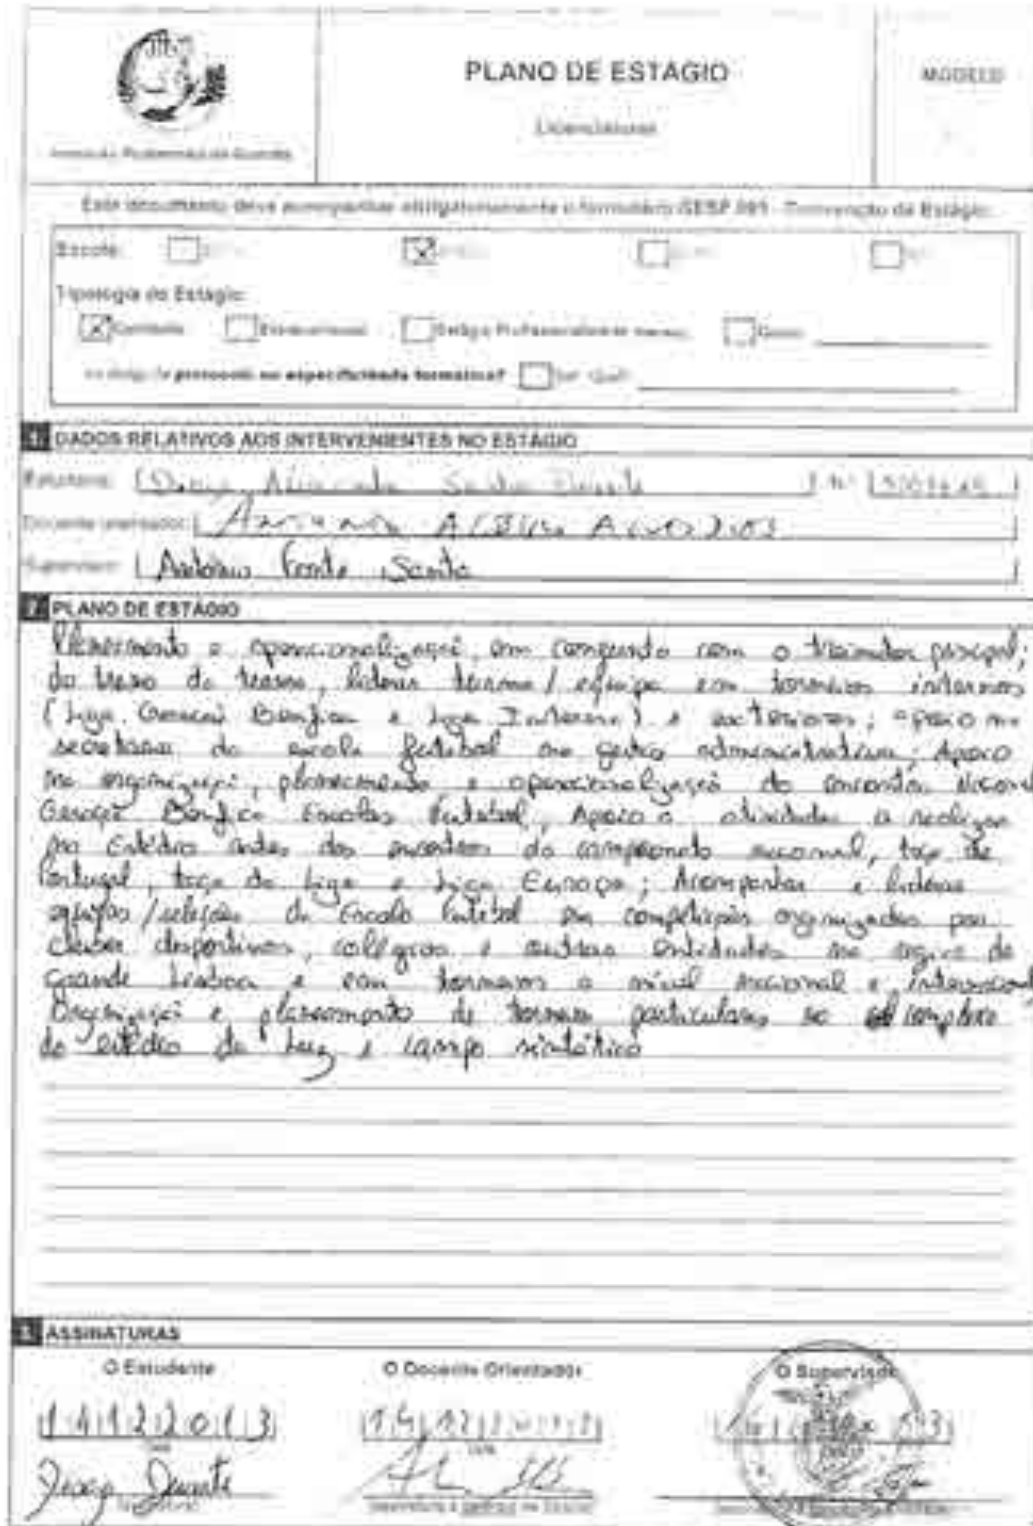 PLANO DE ESTÁGIO
MODELO
Licenciaturas
Instituto Politécnico da Guarda
Este documento deve acompanhar obrigatoriamente o formulário GESP.001 - Convenção de Estágio.
Escola:
Tipologia de Estágio:
Curricular Extracurricular Estágio Profissional
protocolo ou especificidade formativa?
1. DADOS RELATIVOS AOS INTERVENIENTES NO ESTÁGIO
Estudante: Santos Duarte Nº
Docente orientador:
Supervisor: António Fonte Santa
2. PLANO DE ESTÁGIO
Planeamento e operacionalização, em conjunto com o treinador principal;
do treino da turma, liderar turma / equipa em torneios internos
(Liga Geração Benfica e Liga Interna) e exteriores; apoio na
secretaria da escola futebol na gestão administrativa; Apoio
na organização, planeamento e operacionalização do encontro Nacional
Geração Benfica Escolas Futebol, Apoio a atividades a realizar
no Estádio antes dos encontros do campeonato nacional, taça de
Portugal, taça da Liga e Liga Europa; Acompanhar e liderar
equipas / seleções da Escola Futebol em competições organizadas por
clubes desportivos, colégios e outras entidades na região da
Grande Lisboa e em torneios a nível nacional e internacional
Organização e planeamento de torneios particulares no complexo
do estádio da Luz e campo sintético
3. ASSINATURAS
O Estudante O Docente Orientador O Supervisor
14122013
Duarte